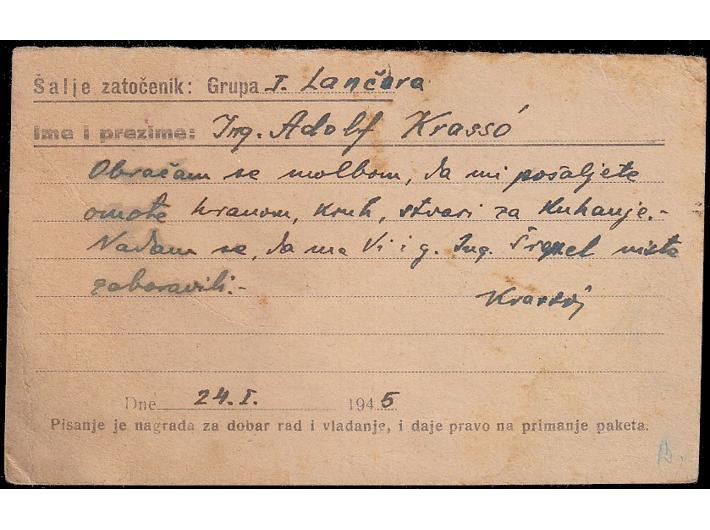 Šalje zatočenik: Grupa I. Lančara
Ime i prezime: Ing. Adolf Krassó
Obraćam se molbom, da mi pošaljete
omote hranom, kruh, stvari za kuhanje.-
Nadam se, da me Vi i g. Ing. niste
zaboravili.-
Dne 24. I. 1945
Pisanje je nagrada za dobar rad i vladanje, i daje pravo na primanje paketa.